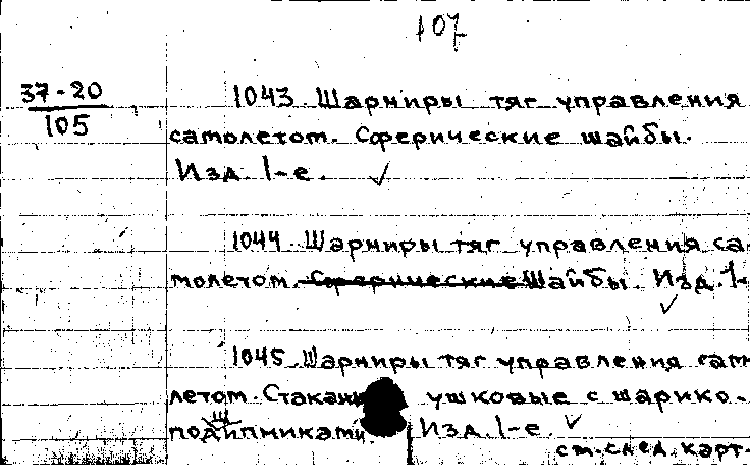 107
37-20
105
1043 Шарниры тяг управления
самолетом. Сферические шайбы.
Изд. 1-е.
1044. Шарниры тяг управления са
молетом. Сферические Шайбы. Изд. 1-
1045 Шарниры тяг управления сам
летом. ушковые с шарико-
Изд. 1-е.
см. след. карт.